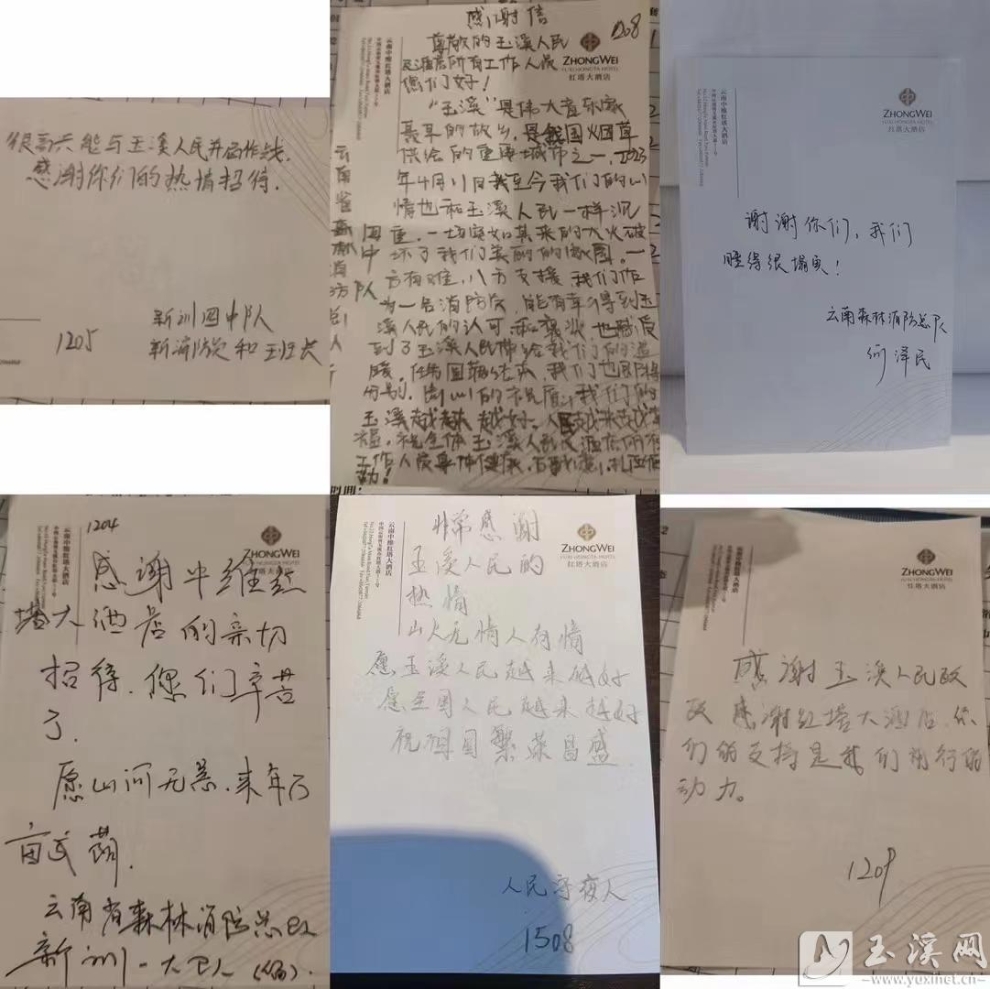 很高兴能与玉溪人民并肩作战，
感谢你们的热情招待。
1205
新训四中队
新消防员和班长
感谢信
1208
尊敬的玉溪人民
及酒店所有工作人员
您们好！
ZHONGWEI
红塔大酒店
云南中维红塔大酒店
"玉溪"是伟大音乐家
聂耳的故乡，是我国烟草
供给的重要城市之一，2023
年4月11日我至今我们的心
情也和玉溪人民一样沉
重，一场突如其来的大火破
坏了我们美丽的家园。一
方有难，八方支援，我们作
为一名消防员，能有幸得到玉
溪人民的认可和褒奖，也感受
到了玉溪人民带给我们的温
暖。
玉溪越来越好。人民越来越幸
福，祝全体玉溪人民及酒店所有
工作人员身体健康，
云南中维红塔大酒店
ZHONGWEI
HONGTA HOTEL
红塔大酒店
谢谢你们，我们
睡得很塌实！
云南森林消防总队
何泽民
1204
云南中维红塔大酒店
ZHONGWEI
HONGTA HOTEL
红塔大酒店
感谢中维红
塔大酒店的亲切
招待，您们辛苦
了。
愿山河无恙，来年万
亩民萌。
云南省森林消防总队
新训一大队
云南中维红塔大酒店
ZHONGWEI
HONGTA HOTEL
红塔大酒店
非常感谢
玉溪人民的
热情
山火无情人有情
愿玉溪人民越来越好
愿全国人民越来越好
祝祖国繁荣昌盛
人民守夜人
1508
云南中维红塔大酒店
ZHONGWEI
HONGTA HOTEL
红塔大酒店
感谢玉溪人民政
政 感谢红塔大酒店，你
们的支持是我们前行的
动力。
1209
玉溪网
www.yuxinet.cn